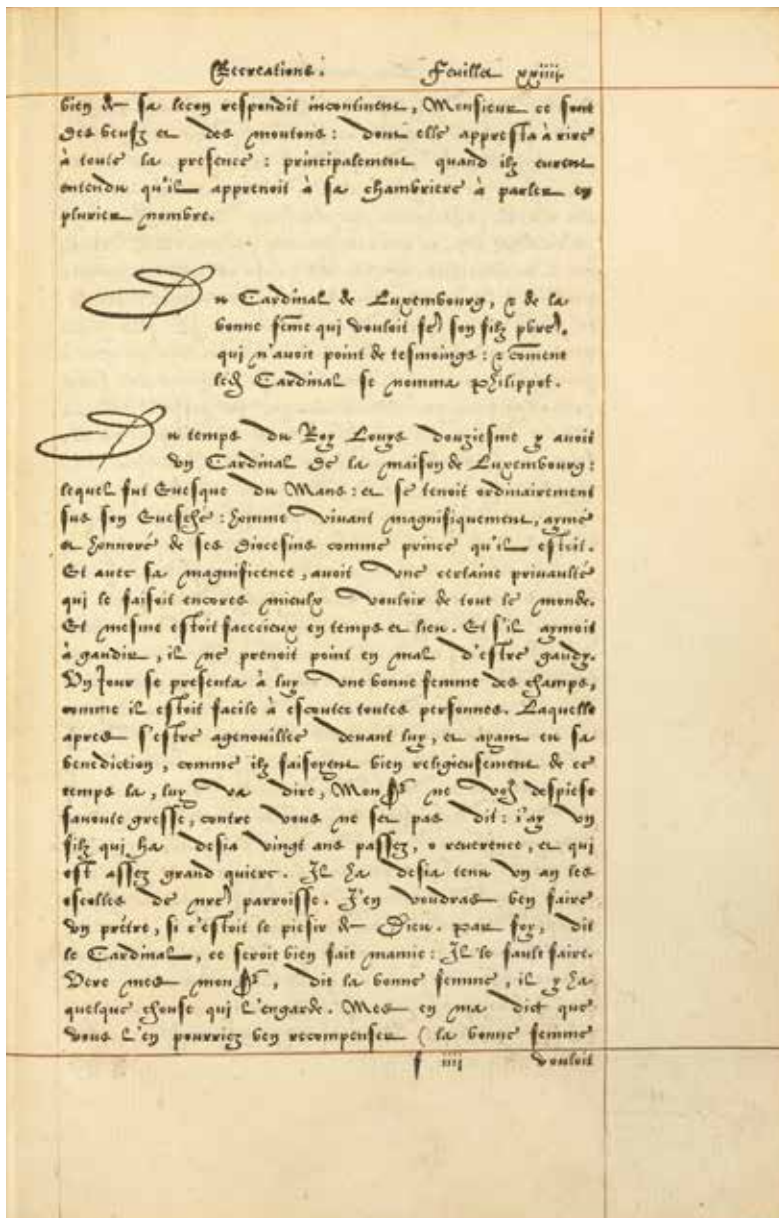 Recreations. Feuillet xxiiii.
bien de sa leçon respondit incontinent, Monsieur ce sont
des beufz et des moutons: dont elle appresta à rire
à toute la presence: principalement quand ilz eurent
entendu qu'il apprenoit à sa chambriere à parler en
plurier nombre.
Du Cardinal de Luxembourg, & de la
bonne fẽme qui vouloit fe͛ son filz pbre͛.
qui n'avoit point de tesmoings: & cõment
led Cardinal se nomma Philippot.
Du temps du Roy Louys douziesme y avoit
un Cardinal de la maison de Luxembourg:
lequel fut Evesque du Mans: et se tenoit ordinairement
sus son Evesché: homme vivant magnifiquement, aymé
et honnoré de ses diocesins comme prince qu'il estoit.
Et avec sa magnificence, avoit une certaine privaulté
qui le faisoit encores mieulx vouloir de tout le monde.
Et mesme estoit faccecieux en temps et lieu. Et s'il aymoit
à gaudir, il ne prenoit point en mal d'estre gaudy.
Un Jour se presenta à luy une bonne femme des champs,
comme il estoit facile à escouter toutes personnes. Laquelle
apres s'estre agenouillee devant luy, et ayant eu sa
benediction, comme ilz faisoyent bien religieusement de ce
temps la, luy va dire, Mons͛ ne voz despiese
savoute gresse, contre vous ne set pas dit: i'ay un
filz qui ha desia vingt ans passez, o reverence, et qui
est assez grand quierc. Il ha desia tenu un an les
escolles de nre͛ parroisse. J'en voudras ben faire
un prétre, si c'estoit le piesir de Dieu. Par foy, dit
le Cardinal, ce seroit bien fait mamie: Il le fault faire.
Vere mes mons͛, dit la bonne femme, il y ha
quelque chouse qui l'engarde. Mes en ma dict que
vous l'en pourriez ben recompenser (la bonne femme
f iiii vouloit